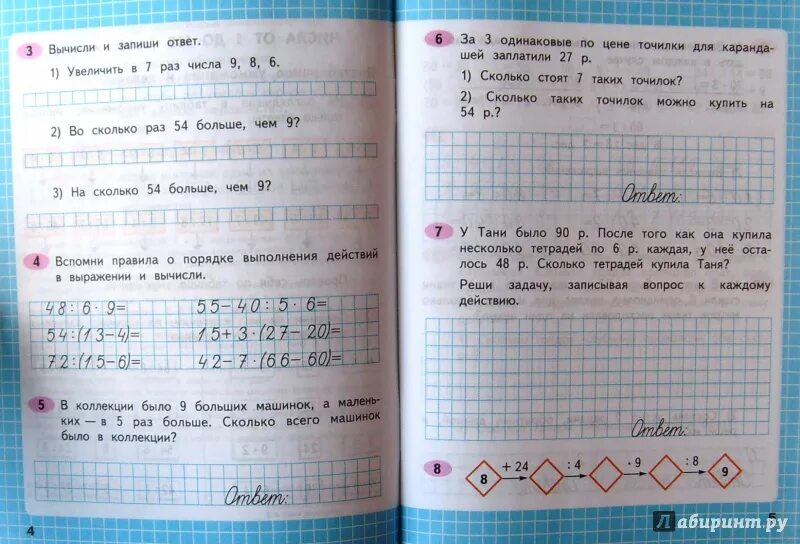 3 Вычисли и запиши ответ.
1) Увеличить в 7 раз числа 9, 8, 6.
2) Во сколько раз 54 больше, чем 9?
3) На сколько 54 больше, чем 9?
4 Вспомни правила о порядке выполнения действий
в выражении и вычисли.
48:6·9= 55-40:5·6=
54:(13-4)= 15+3·(27-20)=
72:(15-6)= 42-7·(66-60)=
5 В коллекции было 9 больших машинок, а малень-
ких — в 5 раз больше. Сколько всего машинок
было в коллекции?
Ответ:
4
6 За 3 одинаковые по цене точилки для каранда-
шей заплатили 27 р.
1) Сколько стоят 7 таких точилок?
2) Сколько таких точилок можно купить на
54 р.?
Ответ:
7 У Тани было 90 р. После того как она купила
несколько тетрадей по 6 р. каждая, у неё оста-
лось 48 р. Сколько тетрадей купила Таня?
Реши задачу, записывая вопрос к каждому
действию.
Ответ:
8 8 + 24 : 4 · 9 : 8 9
5
Лабиринт.ру